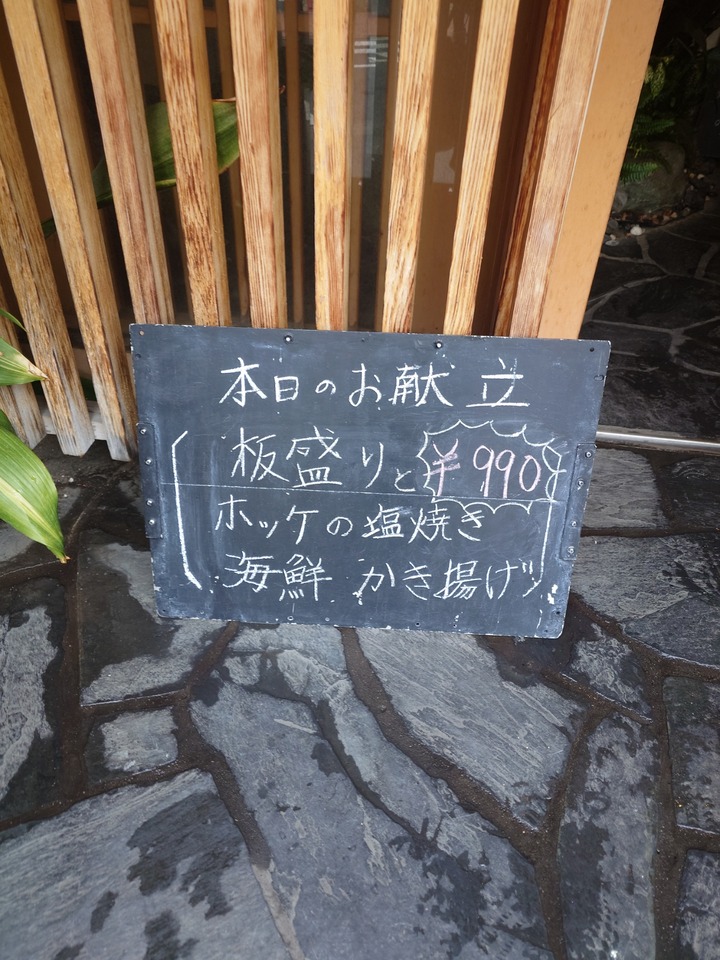 本日のお献立
板盛りと ¥990
ホッケの塩焼き
海鮮かき揚げ